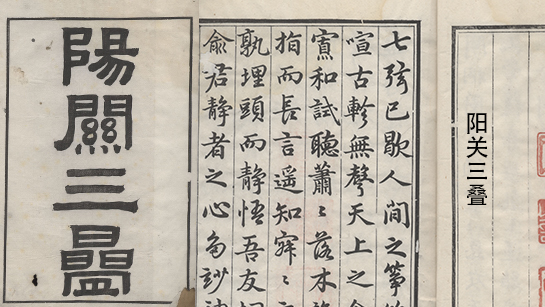 阳关三叠
七弦已歇人間之筝
喧古軫無聲天上之
寡和試聽蕭〻落木
指而長言遥知寂〻
孰埋頭而静悟吾友
俞君静者之心多妙
陽關三疊